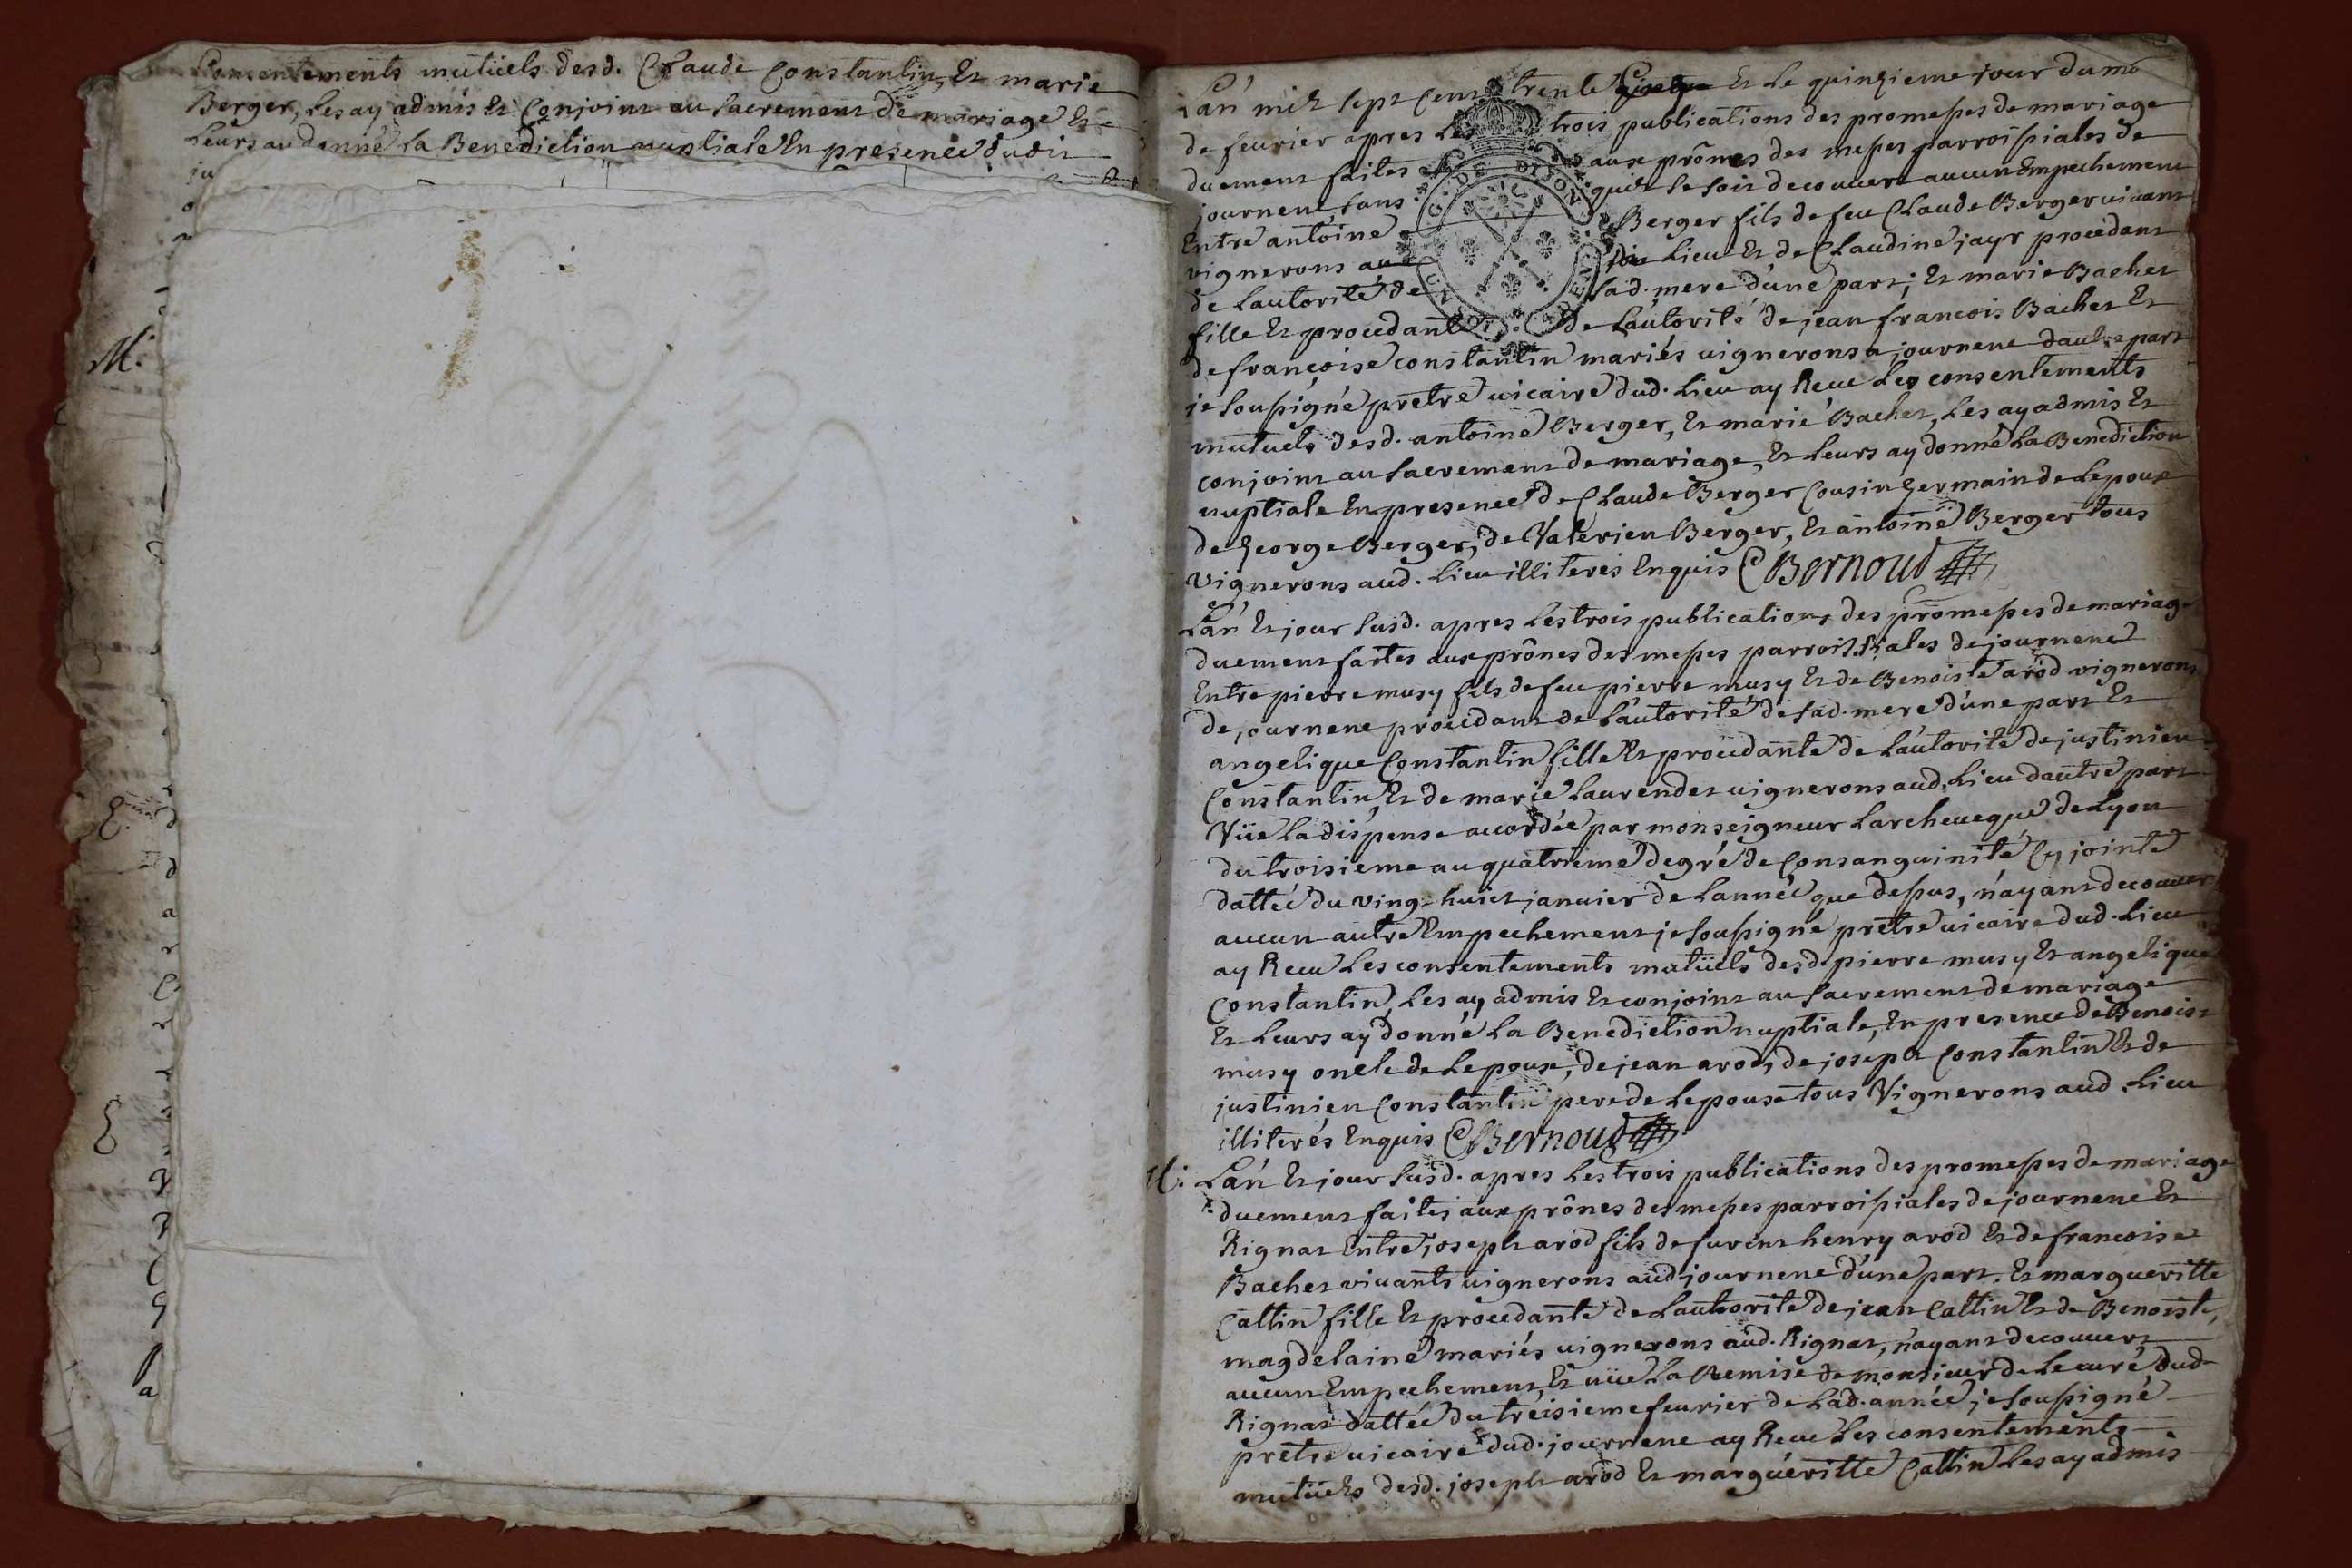 Consentements mutüels desd. Claude Constantin, Et marie
Berger, Les ay admis Et Conjoint au Sacrement de mariage Et
Leurs au donné La Benediction nuptiale En presence dudit
ju
M.
E.
Lan mil sept Cent trente Et Le quinzieme jour du mo
de feurier apres Les trois publications des promesses de mariage
duement faites aux prônes des messes parroissiales de
journene, sans quil se soit decouuert aucun Empechement
Entre antoine Berger fils de feu Claude Berger uiuant
vignerons aud dit Lieu Et de Claudine jayr procedant
de Lautorité de sad. mere d'une part; Et marie Bachet
fille Et procedant de Lautorité de jean francois Bachet Et
de françoise constantin mariés uignerons a journene dautre part
je soussigné prètre uicaire dud. Lieu ay Reçu Les consentements
mutuels desd. antoine Berger, Et marie Bachet, Les ay admis Et
conjoint au Sacrement de mariage, Et Leurs ay donné La Benediction
nuptiale En presence de Claude Berger Cousin germain de Lepoux
de george Berger, de Valerien Berger, Et antoine Berger tous
vignerons aud. Lieu illiterés Enquis C Bernoud
Lan Et jour susd. apres Les trois publications des promesses de mariage
duement faites aux prônes des messes parroissiales de journene
Entre pierre musy fils de feu pierre musy Et de Benoiste arod vignerons
de journene procedant de Lautorité de sad. mere d'une part Et
angelique Constantin fille Et procedante de Lautorité de justinien
Constantin, Et de marie Laurendet uignerons aud. Lieu dautre part
Vüe La dispense accordée par monseigneur Larcheueque de Lyon
du troisieme au quatrieme degré de Consanguinité Cy jointe
dattée du ving-huict januier de Lannée que dessus, n'ayant decouuert
aucun autre Empechement je soussigné prètre uicaire dud. Lieu
ay Recu Les consentements mutüels desd. pierre musy Et angelique
Constantin, Les ay admis Et conjoint au Sacrement de mariage
Et Leurs ay donné La Benediction nuptiale, En presence de Benoist
musy oncle de Lepoux, de jean arod, de joseph Constantin Et de
justinien Constantin pere de Lepouse tous Vignerons aud. Lieu
illiterés Enquis C Bernoud
M: Lan Et jour susd. apres Les trois publications des promesses de mariage
duement faites aux prônes des messes parroissiales de journene Et
Rignat Entre joseph arod fils de furent henry arod Et de francoise
Bachet viuants uignerons aud journene d'une part. Et margueritte
Cattin fille Et procedante de Lauthorité de jean Cattin Et de Benoiste,
magdelaine mariés uignerons aud. Rignat, n'ayant decouuert
aucun Empechement, Et uüe La Remise de monsieur de Le curé dud
Rignat dattée du treisieme feurier de Lad. année, je soussigné
prètre uicaire dud. journene ay Reçu Les consentements
mutüels desd. joseph arod Et margueritte Cattin Les ay admis